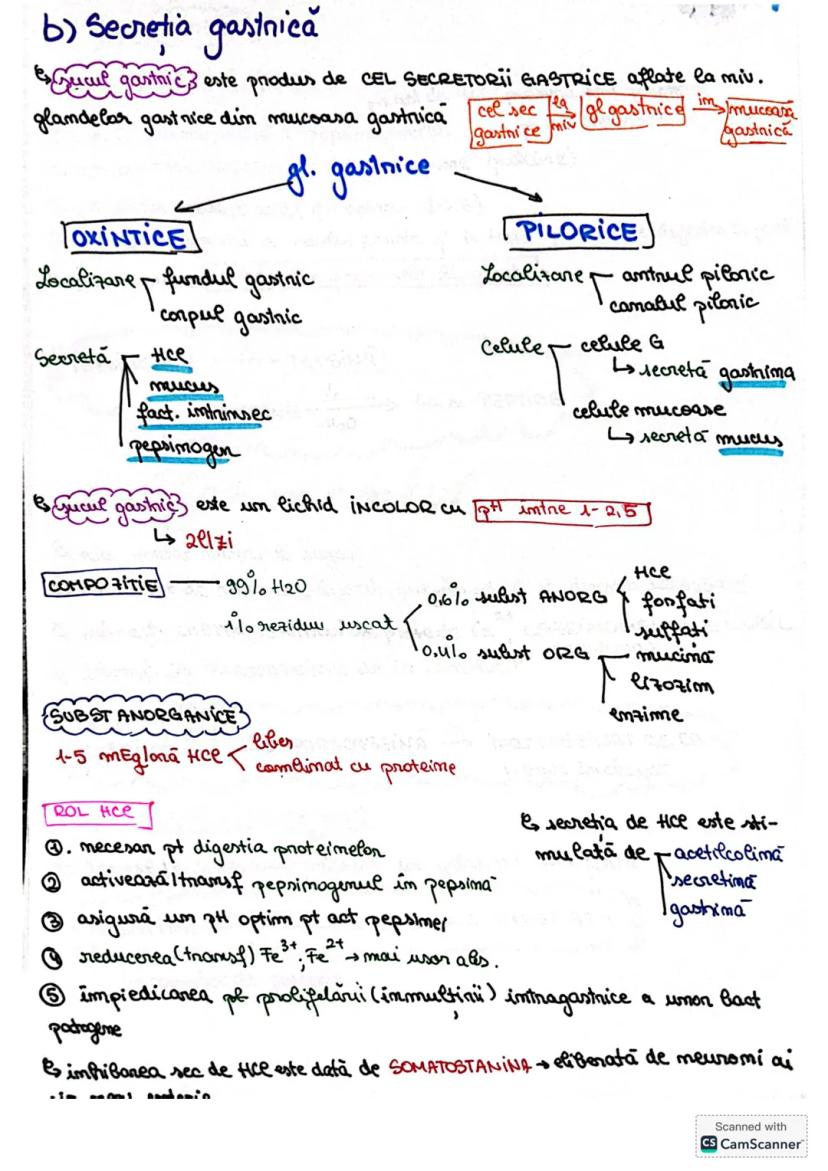 b) Secreția gastrică
↳ sucul gastric este produs de CEL SECRETORII GASTRICE aflate la niv.
glandelor gastrice din mucoasa gastrică
cel sec gastrice la niv → gl gastrice in → mucoasa gastrică
gl. gastrice
OXINTICE
PILORICE
Localizare fundul gastric
corpul gastric
Localizare antrul piloric
canalul piloric
Secretă HCl
mucus
fact. intrinsec
pepsinogen
Celule celule G
↳ secretă gastrina
celule mucoase
↳ secretă mucus
↳ sucul gastric este un lichid INCOLOR cu pH între 1-2,5
↳ 2l/zi
COMPOZIȚIE — 99% H2O
1% reziduu uscat
0,6% subst ANORG HCl
fosfați
sulfați
0,4% subst ORG mucină
lizozim
enzime
SUBST ANORGANICE
1-5 mEg/oră HCl liber
combinat cu proteine
ROL HCl
1. necesar pt digestia proteinelor
2 activează/transf pepsinogenul în pepsină
3 asigură un pH optim pt act pepsinei
4 reducerea (transf) Fe3+; Fe2+ → mai usor abs.
5 împiedicarea proliferării (înmulțirii) intragastrice a unor bact
patogene
↳ secreția de HCl este sti-
mulată de acetilcolină
secretină
gastrină
↳ inhibarea sec de HCl este dată de SOMATOSTANINA → eliberată de neuroni ai
Scanned with
CS CamScanner